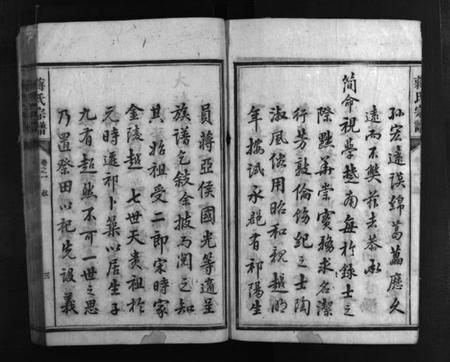 孫宏遠謨綿嵩萬歷久
遠而不獘茲去恭承
簡命視學越南每於錄士之
際黜華崇實務求名潔
行芳敦倫飭紀之士陶
淑風俗用昭和視越明
年按試永郡有祁陽生
員蔣亞侯國光等遞呈
族譜乞敘余披而閱之知
其始祖受二郎宋時家
金陵越七世天貴祖於
元時遷祁卜築以居生子
九有超然不可一世之思
乃置祭田以祀先設義
蔣氏宗譜
卷之一
三
蔣氏宗譜